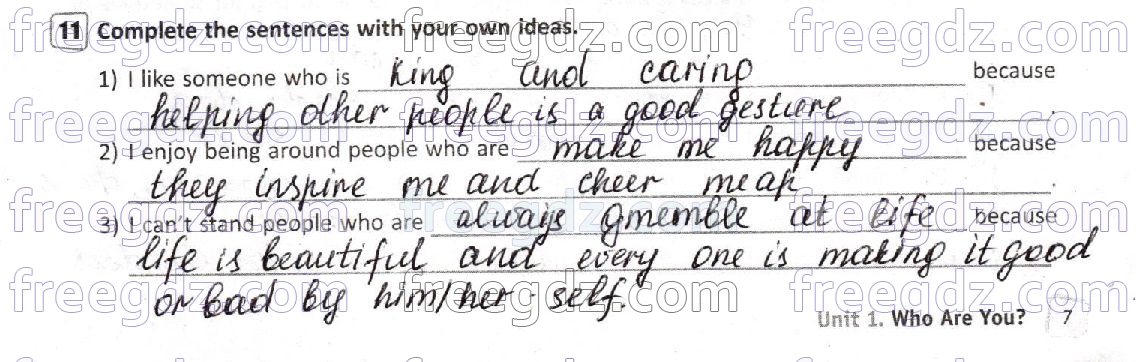 11 Complete the sentences with your own ideas.
1) I like someone who is king and caring because
helping other people is a good gesture.
2) I enjoy being around people who are make me happy because
they inspire me and cheer me up.
3) I can't stand people who are always at life because
life is beautiful and every one is making it good
or bad by him/her self.
Unit 1. Who Are You? 7
freegdz.com